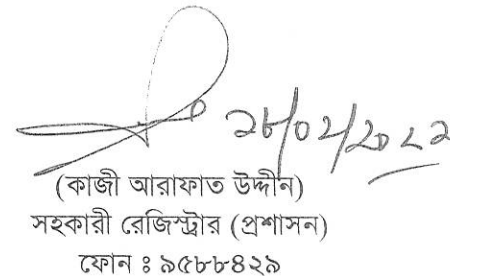 ২৮/০২/২০২২
(কাজী আরাফাত উদ্দীন)
সহকারী রেজিস্ট্রার (প্রশাসন)
ফোন ঃ ৯৫৮৮৪২৯